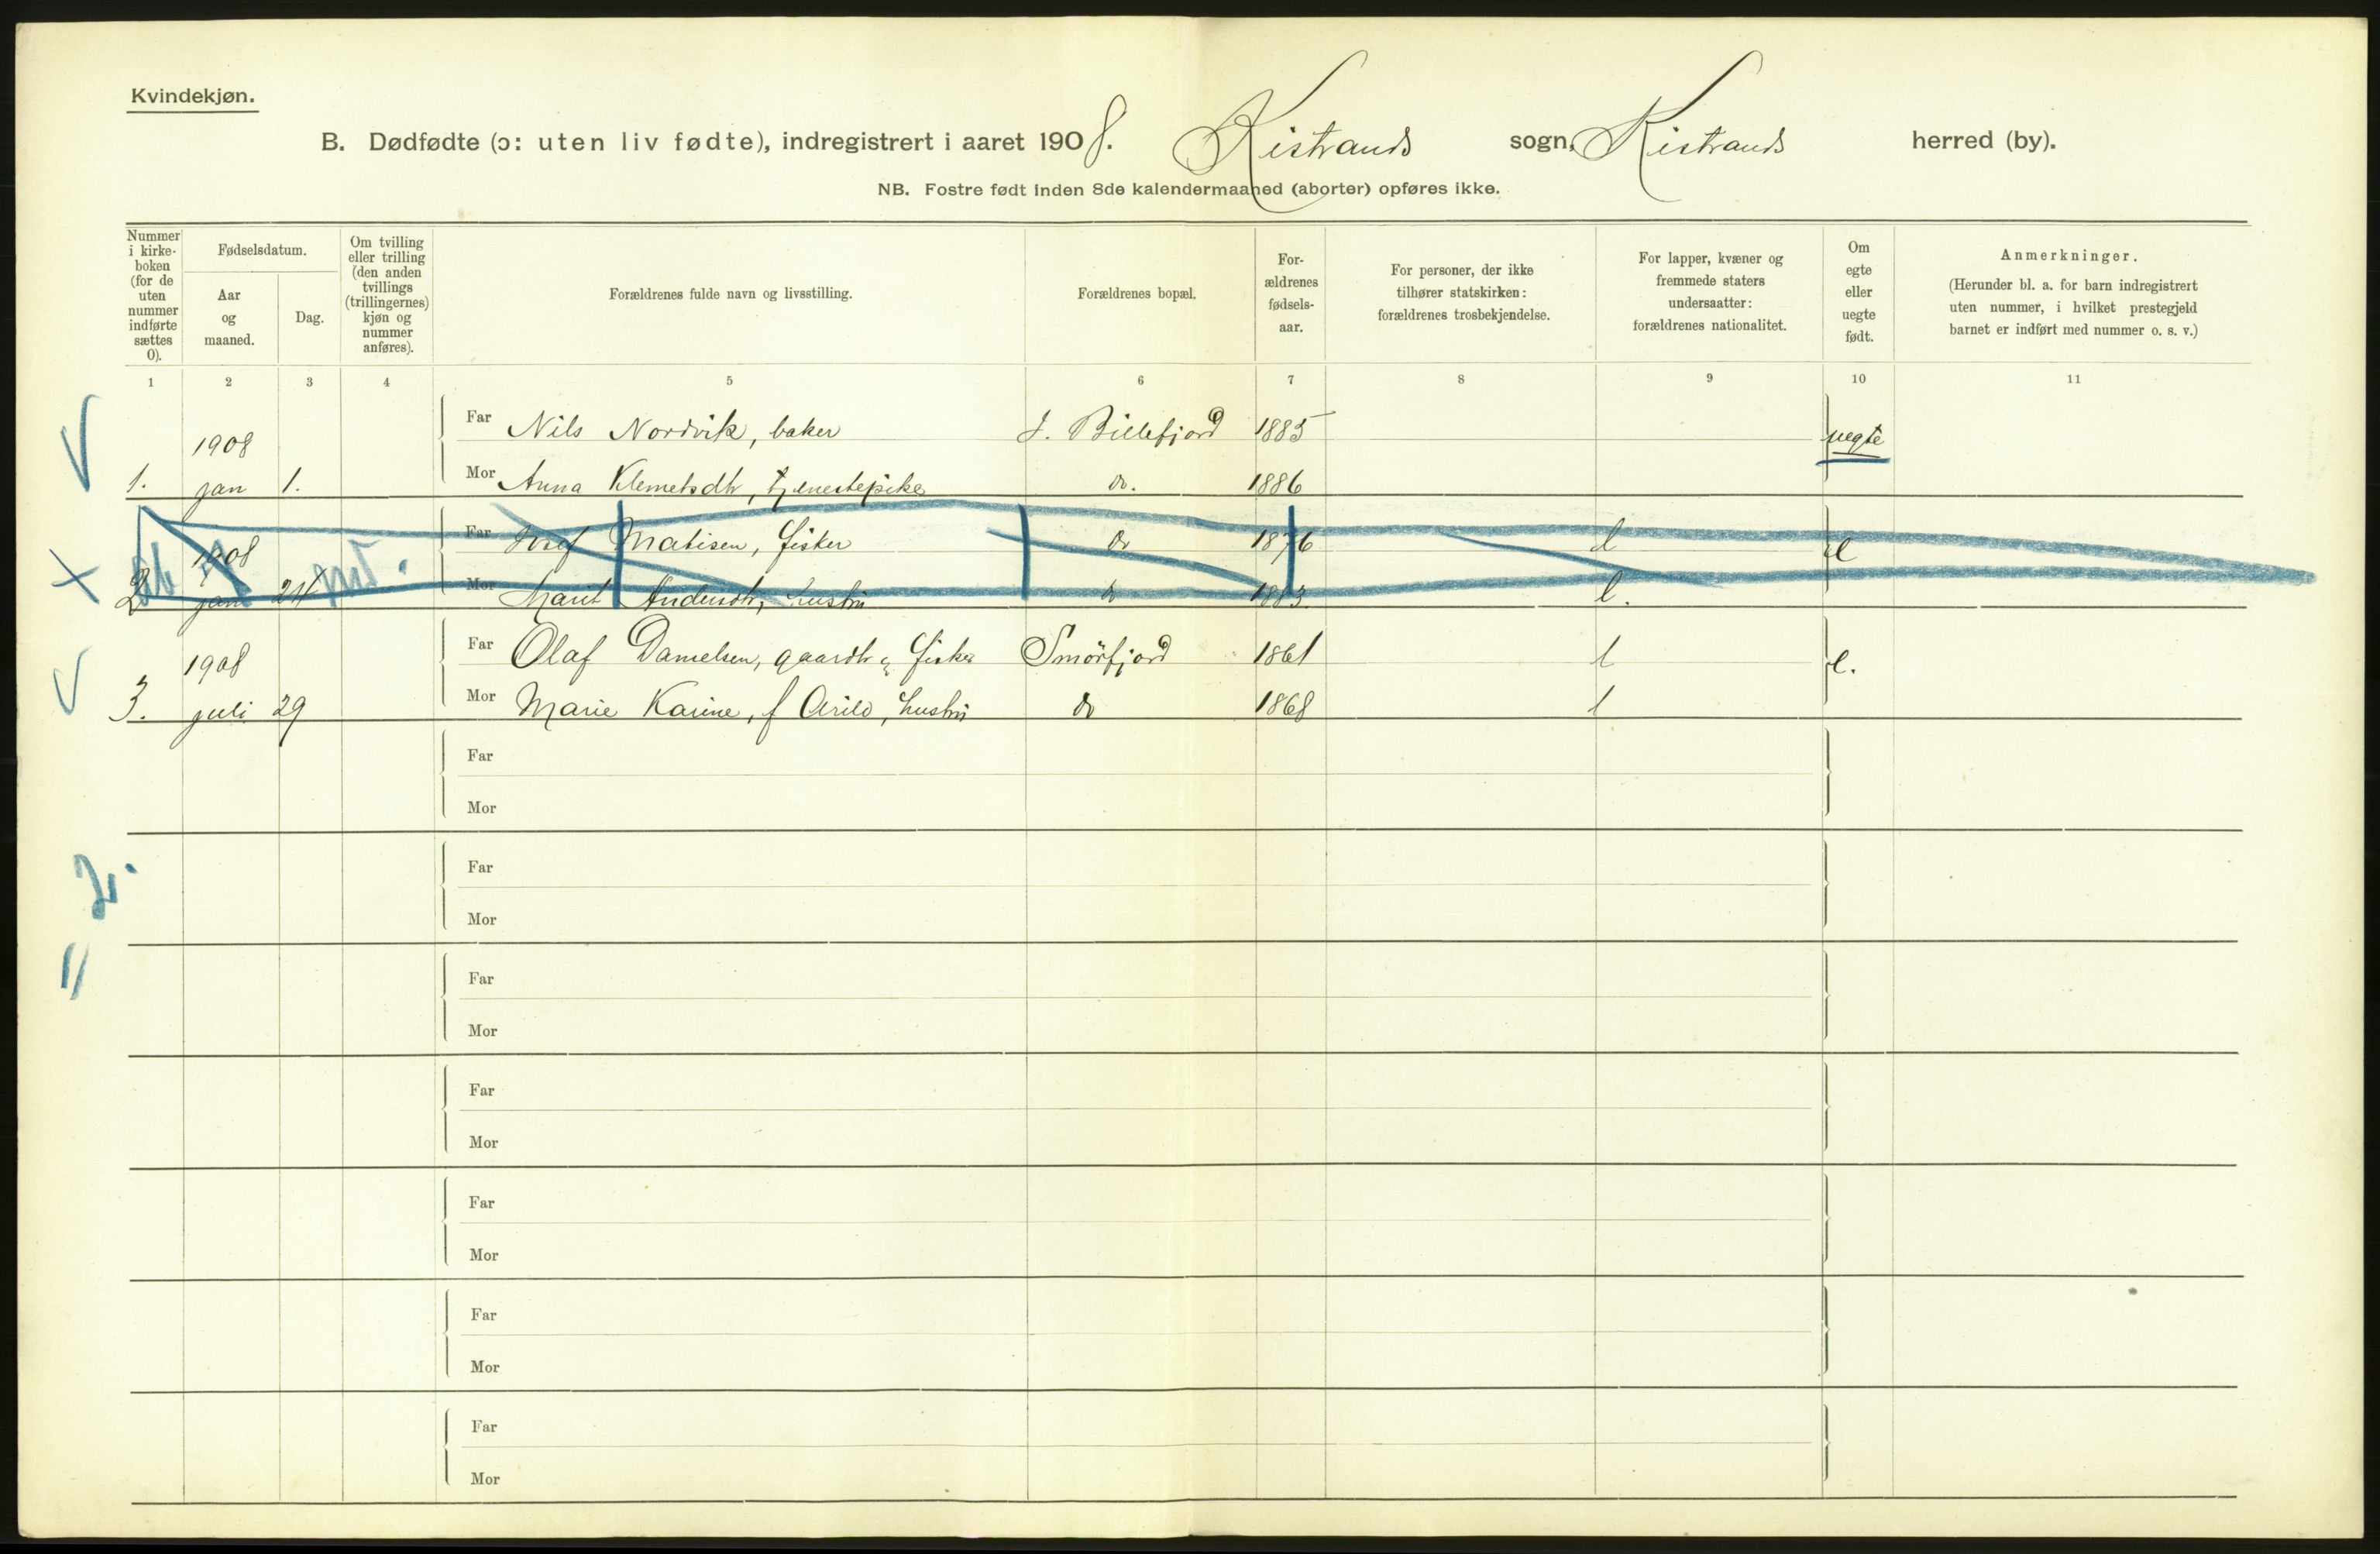 Kvindekjøn.
B. Dødfødte (ɔ: uten liv fødte), indregistrert i aaret 1908. Kistrands sogn, Kistrands herred (by).
NB. Fostre født inden 8de kalendermaaned (aborter) opføres ikke.
Nummer i kirke-boken (for de uten nummer indførte sættes 0).
Fødselsdatum.
Aar og maaned.
Dag.
Om tvilling eller trilling (den anden tvillings (trillingernes) kjøn og nummer anføres).
Forældrenes fulde navn og livsstilling.
Forældrenes bopæl.
For-ældrenes fødsels-aar.
For personer, der ikke tilhører statskirken: forældrenes trosbekjendelse.
For lapper, kvæner og fremmede staters undersaatter: forældrenes nationalitet.
Om egte eller uegte født.
Anmerkninger.
(Herunder bl. a. for barn indregistrert uten nummer, i hvilket prestegjeld barnet er indført med nummer o. s. v.)
1 2 3 4 5 6 7 8 9 10 11
1908 Far Nils Nordvik, baker Billefjord 1885 uegte
1. jan 1. Mor Anna Klemetsdtr, tjenestepike do. 1886
1908 Far Josef Matisen, fisker do 1876 l e
2 jan 24 Mor Marit Andersdtr, hustru do 1883 l.
1908 Far Olaf Danielsen, gaardbr & fisker Smörfjord 1861 l e.
3. juli 29 Mor Marie Karine, f Arild, hustru do 1868 l
Far
Mor
Far
Mor
2.
Far
Mor
Far
Mor
Far
Mor
Far
Mor
Far
Mor